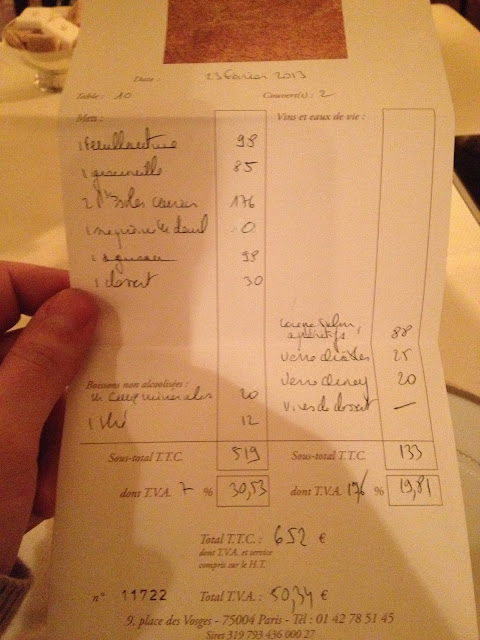 Date : 23 février 2013
Table : 10 Couvert(s) : 2
Mets : Vins et eaux de vie :
1 98
1 grenouille 85
2 176
1 0
1 98
1 dessert 30
apéritifs 88
verre 25
verre 20
vins de dessert —
Boissons non alcoolisées :
minérales 20
1 thé 12
Sous-total T.T.C. 519 Sous-total T.T.C. 133
dont T.V.A. 7 % 30,53 dont T.V.A. % 19,81
Total T.T.C. : 652 €
dont T.V.A. et service
compris sur le H.T.
n° 11722 Total T.V.A. : 50,34 €
9, place des Vosges - 75004 Paris - Tél : 01 42 78 51 45
Sires 319 793 436 000 27